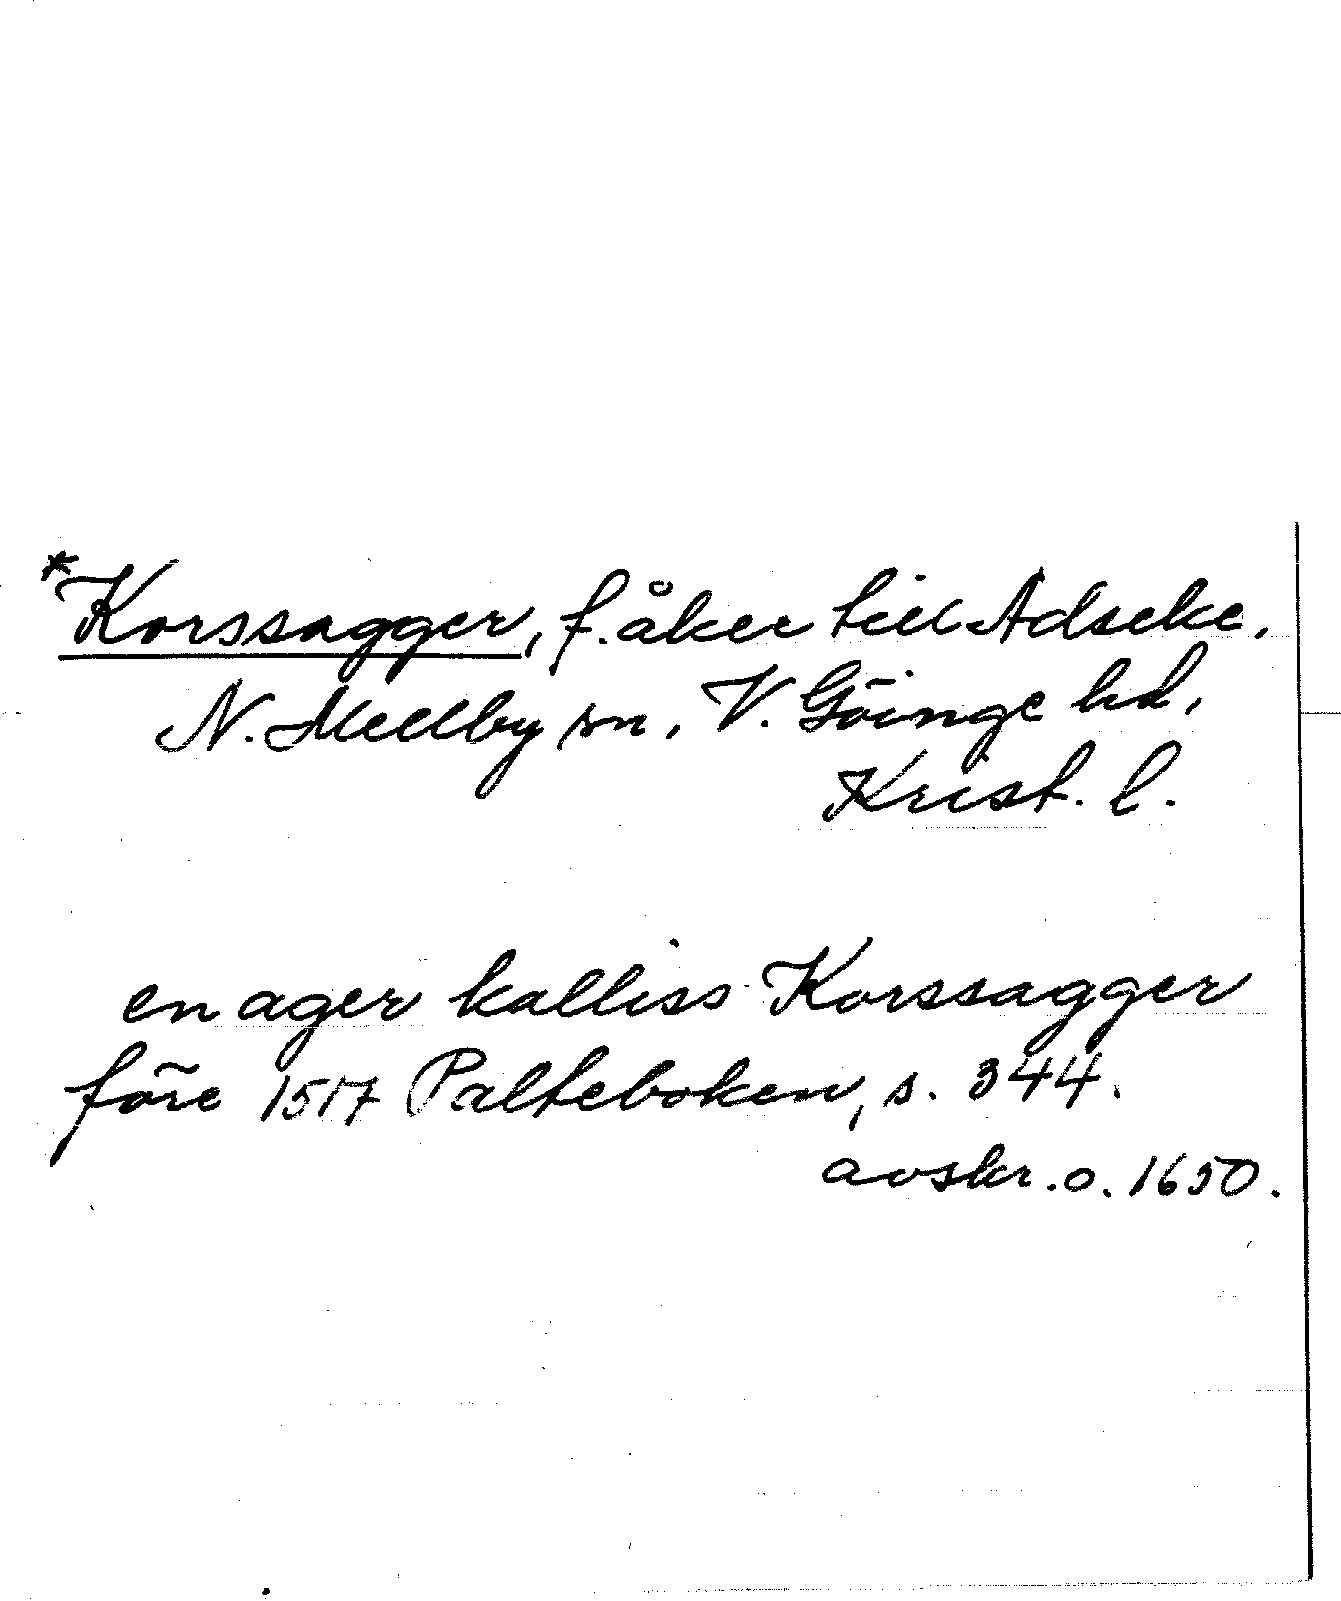 *Korssagger, f. åker till Adseke,
N. Mellby sn, V. Göinge hd,
Krist. l.
en ager kalliss Korssagger
före 1517 Palteboken, s. 344.
avskr. o. 1650.